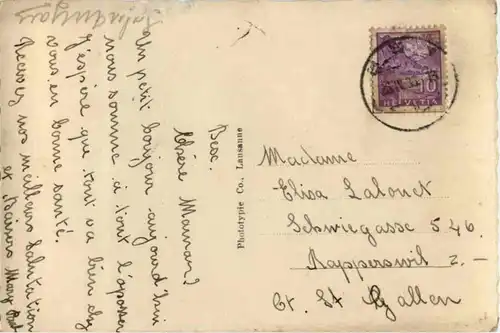 Bex.
Chère Maman?
Un petit bonjour aujourd'hui
nous somme à tout l'oposer
J'espère que tout va bien chez
vous. en bonne santé.
Recevez nos meilleurs Salutation
et baisers Mary
Phototypie Co., Lausanne
10
HELVETIA
Madame
Elisa Lalouet
Schwiegasse 546.
Rapperswil 2.-
Ct. St Gallen